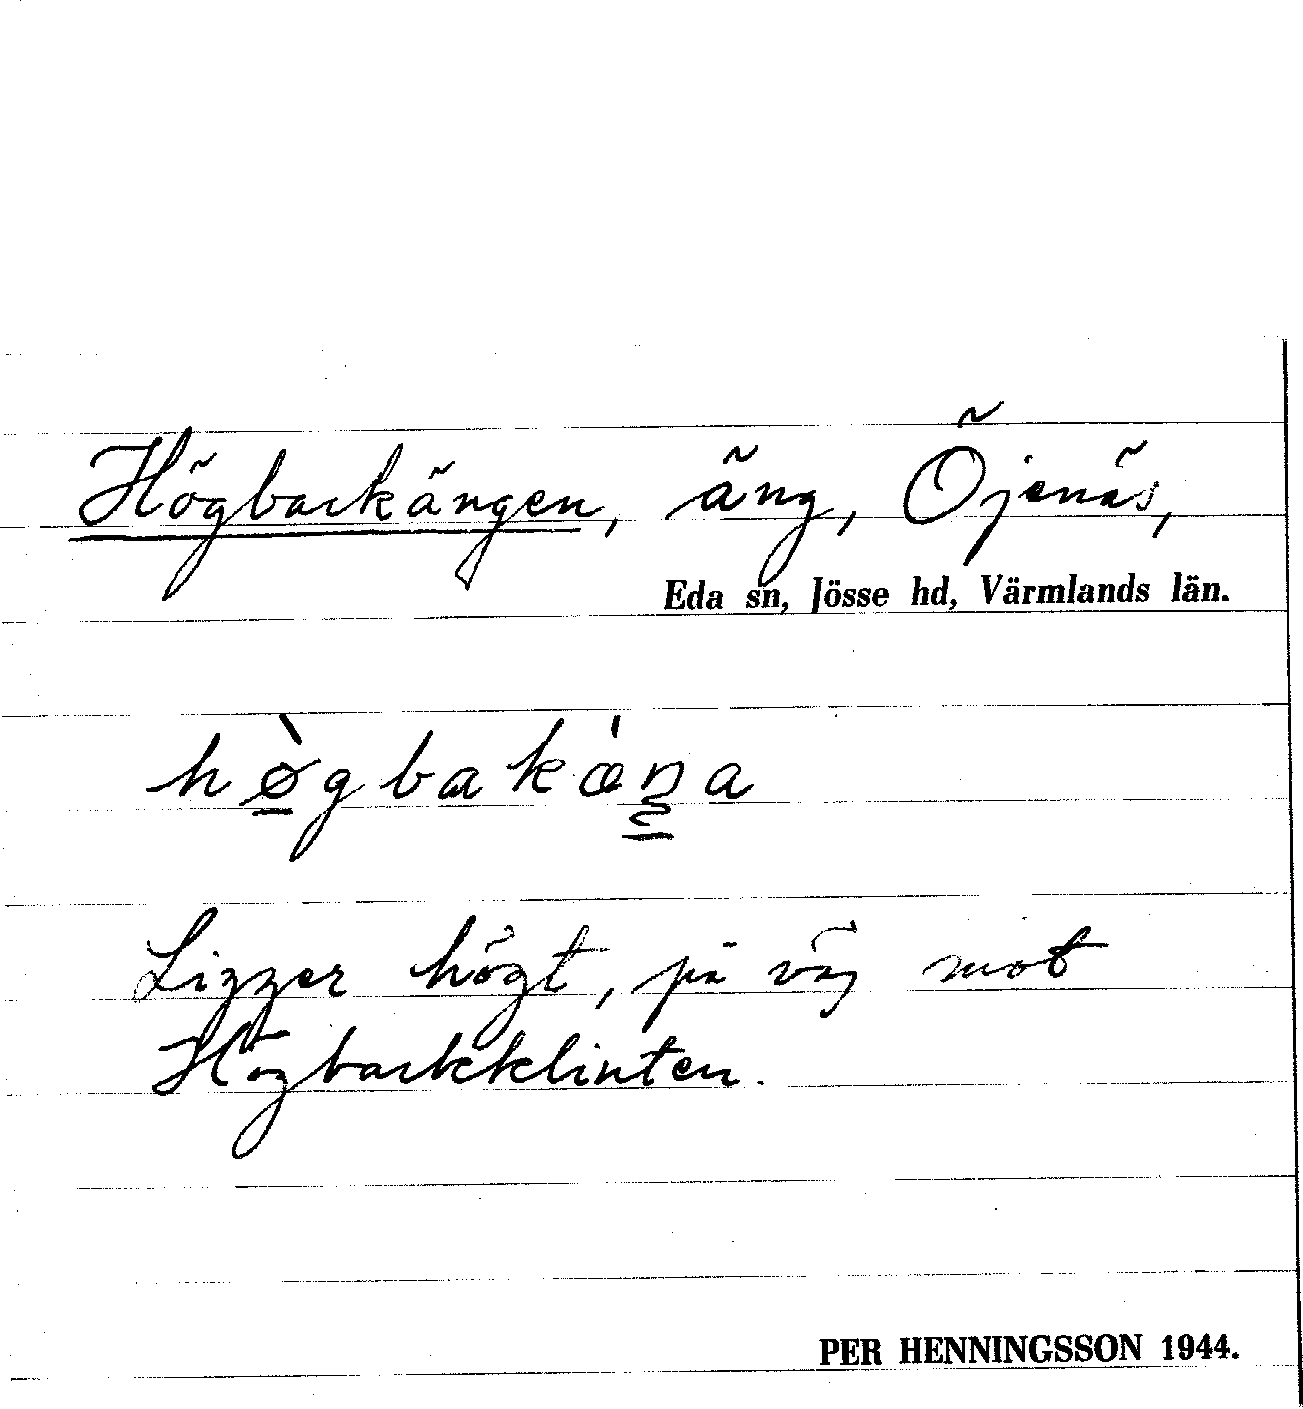 Högbackängen, äng, Öjenäs,
Eda sn, Jösse hd, Värmlands län.
hø̀gbakæ̀ŋa
Ligger högt, på väg mot
Högbackklinten.
PER HENNINGSSON 1944.